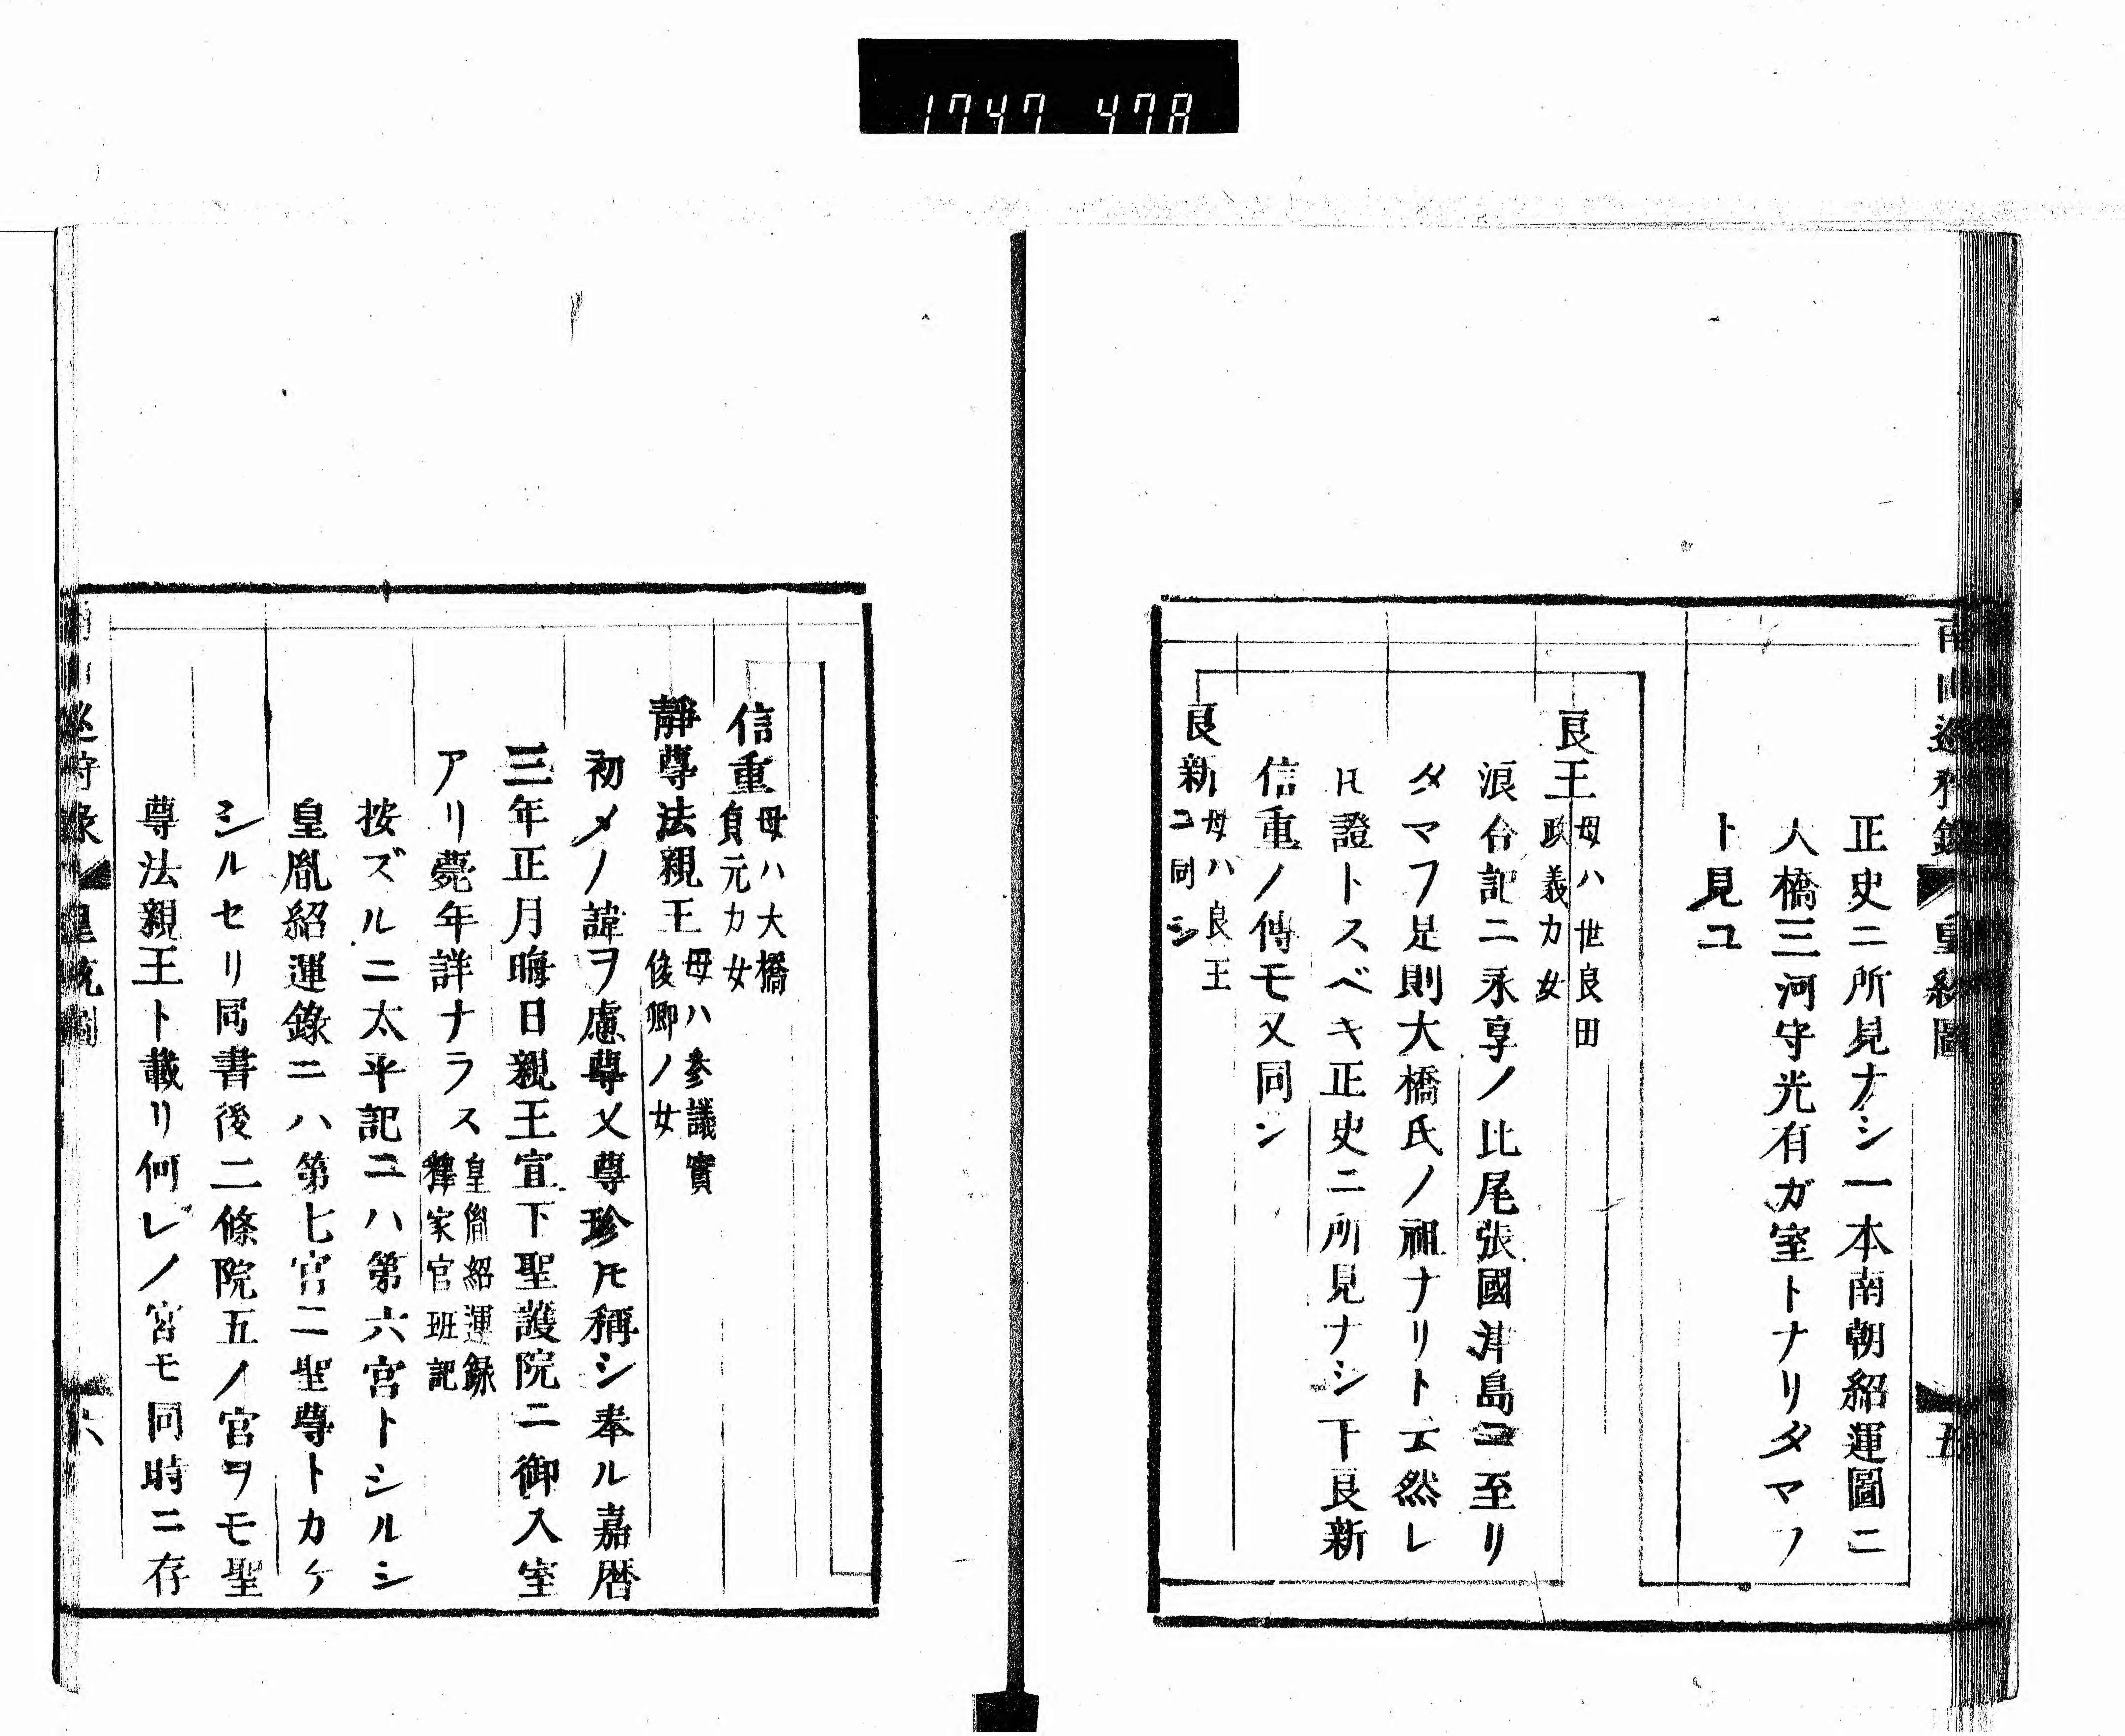 1747 478
正史ニ所見ナシ一本南朝紹運圖ニ
人橋三河守光有ガ室トナリタマフ
ト見ユ
良王 母ハ世良田
政義カ女
浪合記ニ永享ノ比尾張國津島ニ至リ
タマフ是則大橋氏ノ祖ナリト云然レ
𪜈證トスベキ正史ニ所見ナシ下良新
信重ノ傳モ又同シ
良新 母ハ良王
ニ同シ
信重 母ハ大橋
貞元カ女
靜尊法親王 母ハ參議實
俊卿ノ女
初メノ諱ヲ慮尊又尊珍𪜈稱シ奉ル嘉暦
三年正月晦日親王宣下聖護院ニ御入室
アリ薨年詳ナラス 皇胤紹運録
釋家官班記
按ズルニ太平記ニハ第六宮トシルシ
皇胤紹運錄ニハ第七宮ニ聖尊トカケ
シルセリ同書後二條院五ノ宮ヲモ聖
尊法親王ト載リ何レノ宮モ同時ニ存